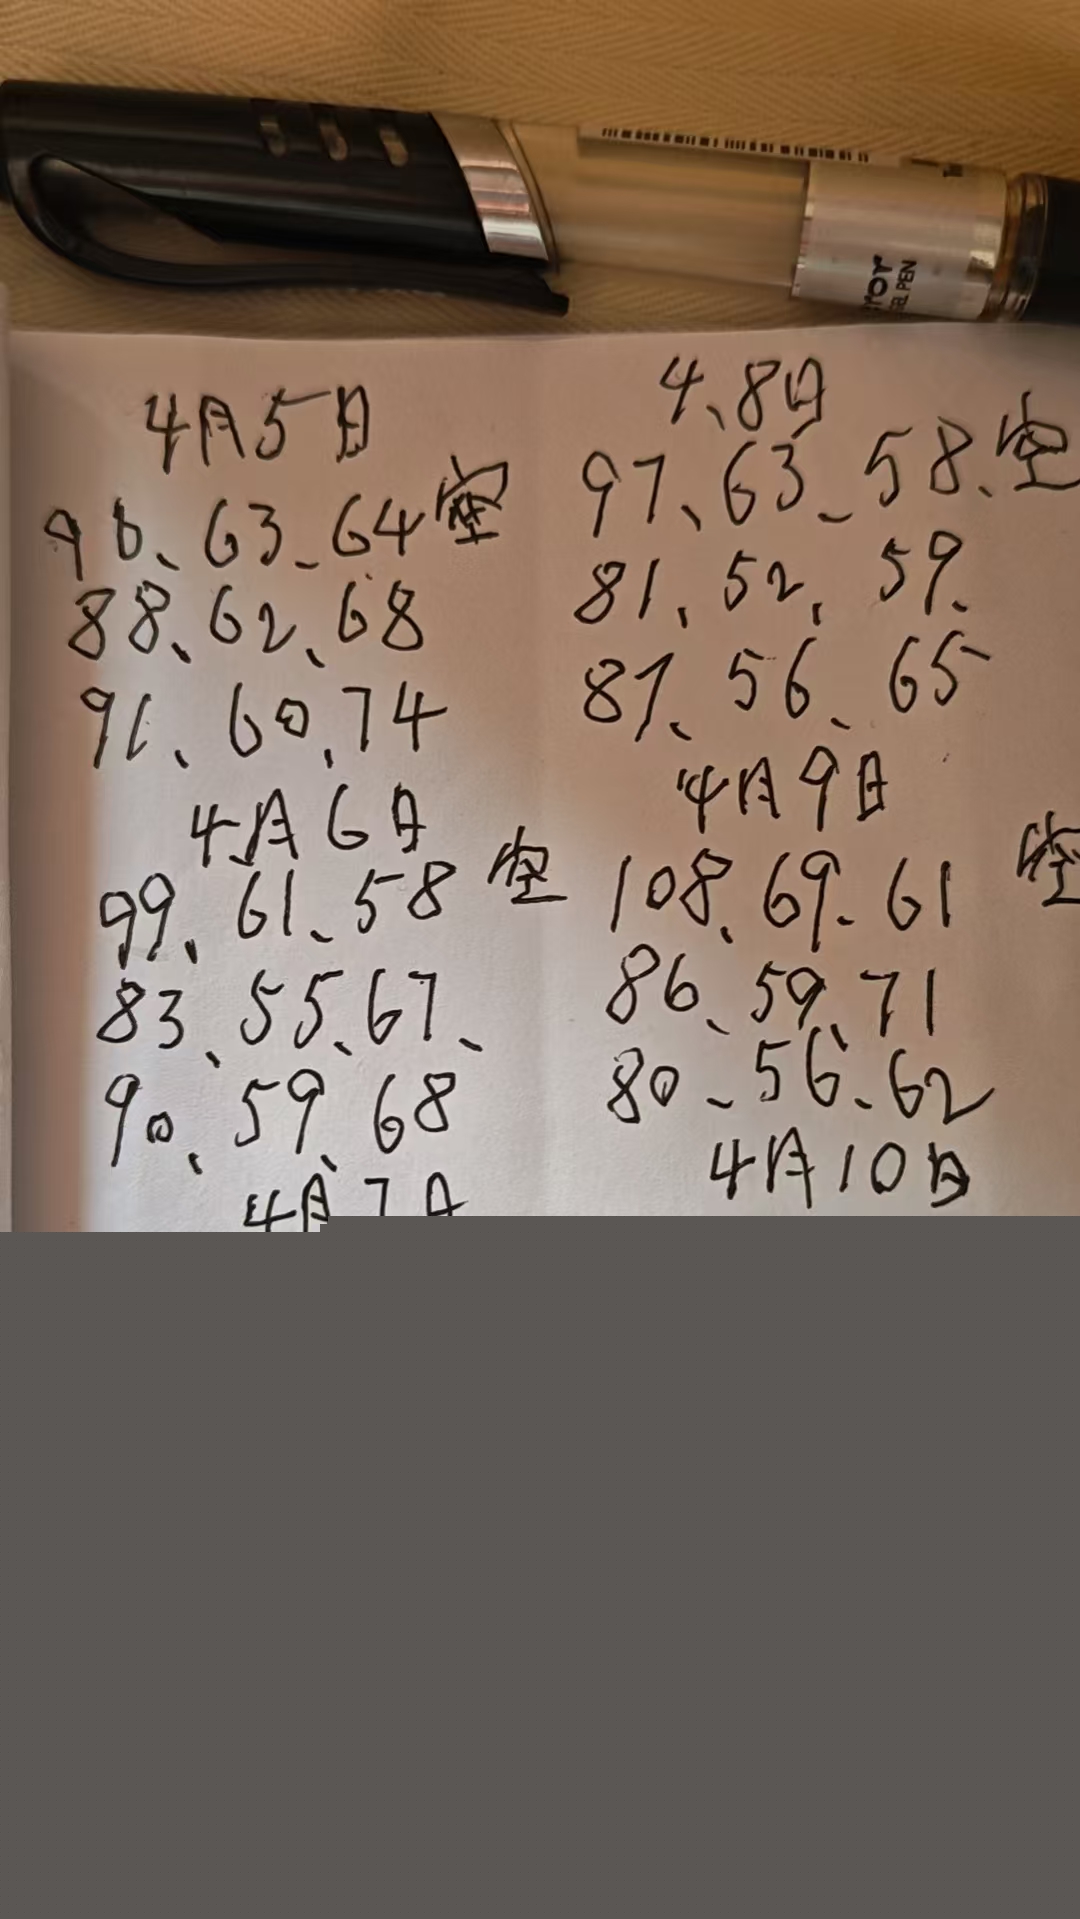 ror
GEL PEN
4月5日
96、63、64 空
88、62、68
91、60、74
4月6日
99、61、58 空
83、55、67、
90、59、68
4月7日
4、8日
97、63、58、空
81、52、59、
87、56、65
4月9日
108、69、61 空
86、59、71
80、56、62
4月10日